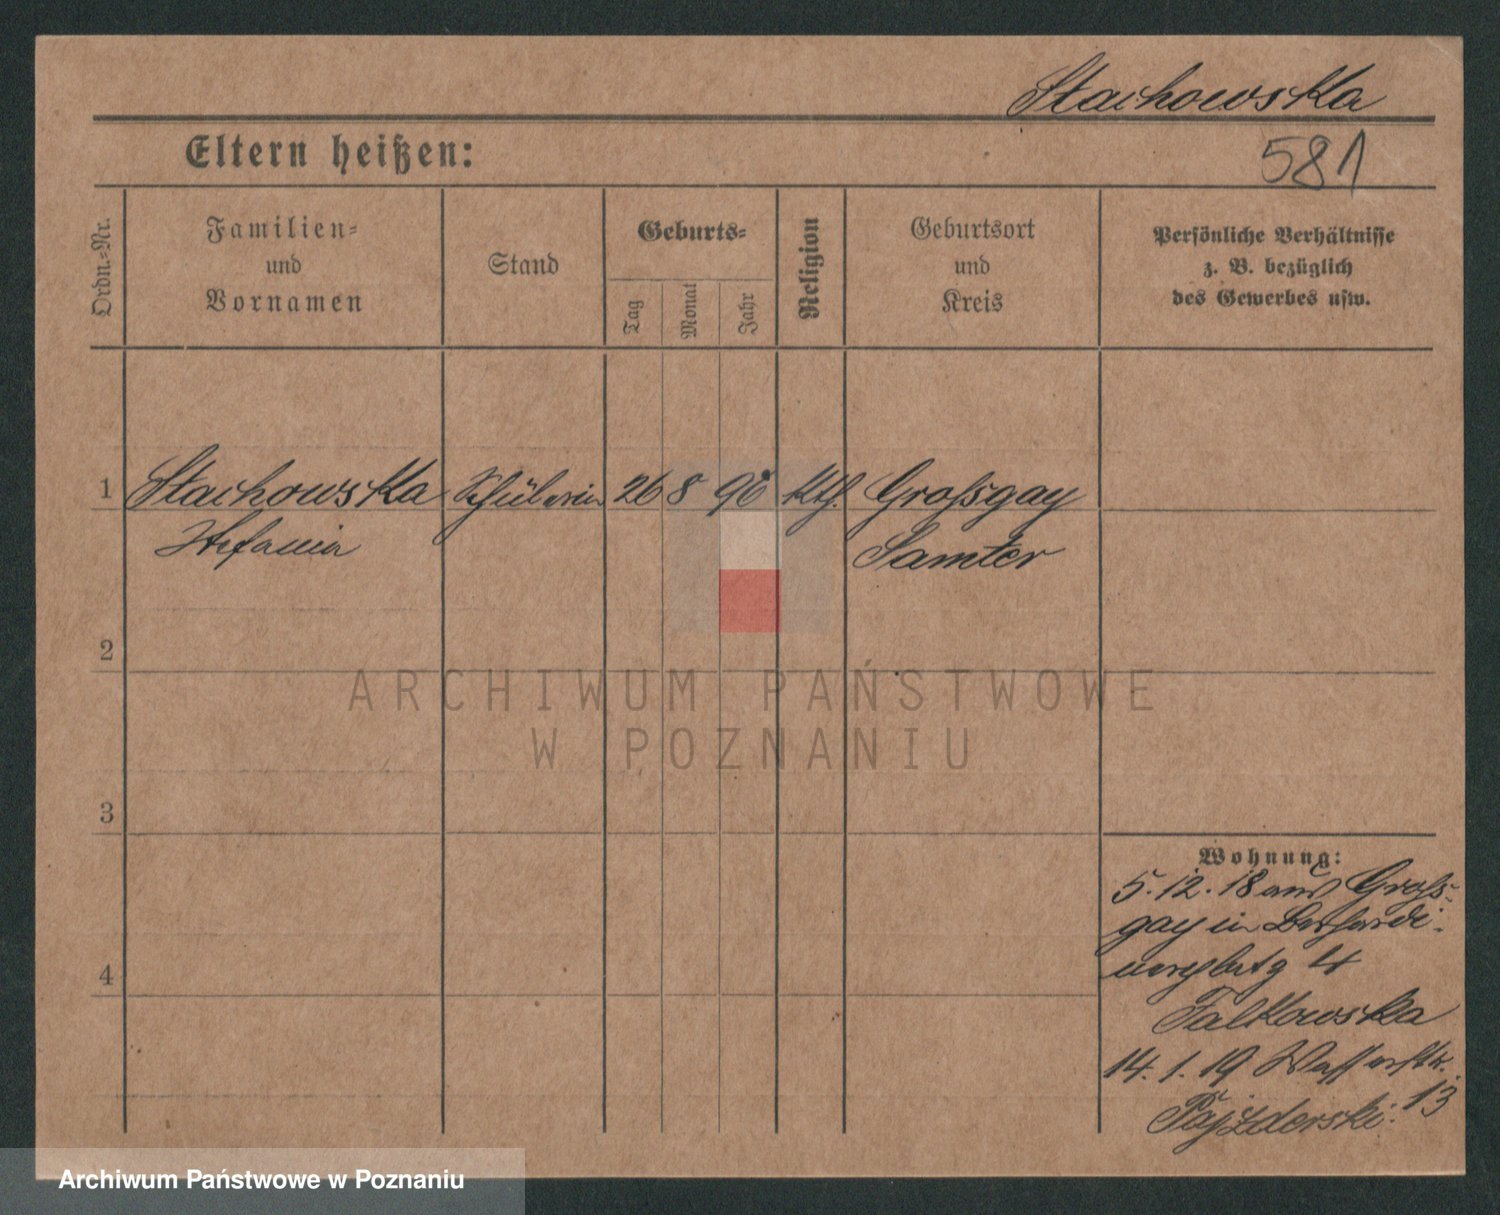 Stachowska
Eltern heißen:
581
Ordn.-Nr.
Familien-
und
Vornamen
Stand
Geburts-
Tag
Monat
Jahr
Religion
Geburtsort
und
Kreis
Persönliche Verhältnisse
z. B. bezüglich
des Gewerbes usw.
1 Stachowska Schülerin 26 8 90 kth. Grossgay
Stefania Samter
2
3
4
Wohnung:
5.12.18 aus Gross-
gay in Bernhardi-
nerplatz 4
Falkowska
14.1.19 Wasserstr.
13
Pajzderski
ARCHIWUM PAŃSTWOWE
W POZNANIU
Archiwum Państwowe w Poznaniu